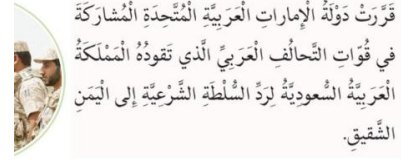 قَرَّرَتْ دَوْلَةُ الْإِماراتِ الْعَرَبِيَّةِ الْمُتَّحِدَةِ الْمُشارَكَةَ
في قُوّاتِ التَّحالُفِ الْعَرَبِيِّ الَّذي تَقودُهُ الْمَمْلَكَةُ
الْعَرَبِيَّةُ السُّعودِيَّةُ لِرَدِّ السُّلْطَةِ الشَّرْعِيَّةِ إِلى الْيَمَنِ
الشَّقيقِ.